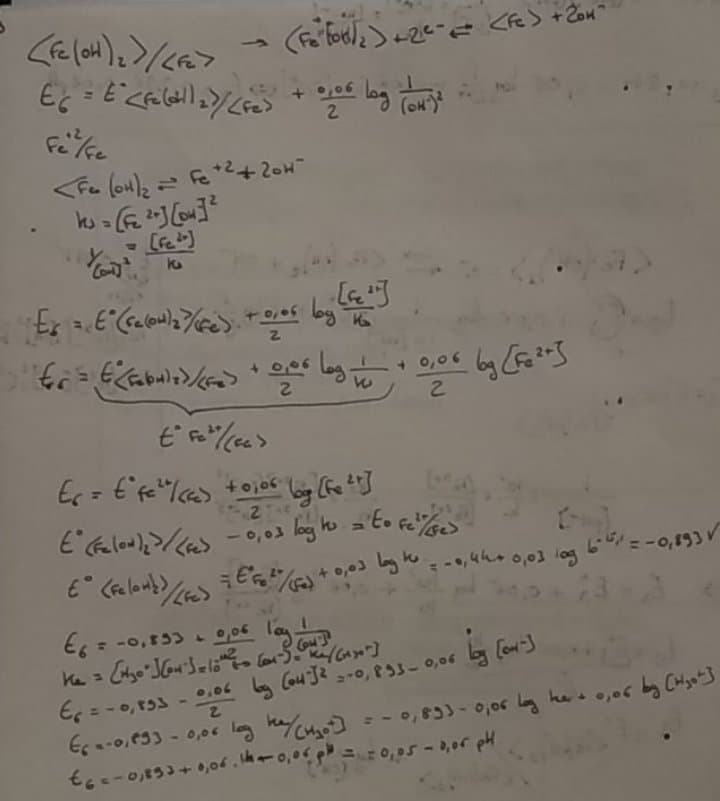 <Fe(OH)₂>/<Fe> → <Fe(OH)₂> + 2e⁻ ⇌ <Fe> + 2OH⁻
E₆ = E°<Fe(OH)₂>/<Fe> + 0,06/2 log 1/(OH⁻)²
Fe⁺²/Fe
<Fe(OH)₂ ⇌ Fe⁺² + 2OH⁻
Ks = [Fe²⁺][OH]²
1/[OH]² = [Fe²⁺]/Ks
E₆ = E°<Fe(OH)₂>/<Fe> + 0,06/2 log [Fe²⁺]/Ks
E₆ = E°<Fe(OH)₂>/<Fe> + 0,06/2 log 1/Ks + 0,06/2 log [Fe²⁺]
E° Fe²⁺/<Fe>
E₆ = E° Fe²⁺/<Fe> + 0,06/2 log [Fe²⁺]
E°<Fe(OH)₂>/<Fe> - 0,03 log Ks = E° Fe²⁺/<Fe>
E° <Fe(OH)₂>/<Fe> = E° Fe²⁺/<Fe> + 0,03 log Ks = -0,44 + 0,03 log 10⁻¹⁵,¹ = -0,893 ✓
E₆ = -0,893 + 0,06/2 log 1/[OH⁻]²
Ke = [H₃O⁺][OH⁻] = [OH⁻] = Ke/[H₃O⁺]
E₆ = -0,893 - 0,06/2 log [OH⁻]² = -0,893 - 0,06 log [OH⁻]
E₆ = -0,893 - 0,06 log Ke/[H₃O⁺] = -0,893 - 0,06 log Ke + 0,06 log [H₃O⁺]
E₆ = -0,893 + 0,06 . 14 - 0,06 pH = -0,05 - 0,06 pH